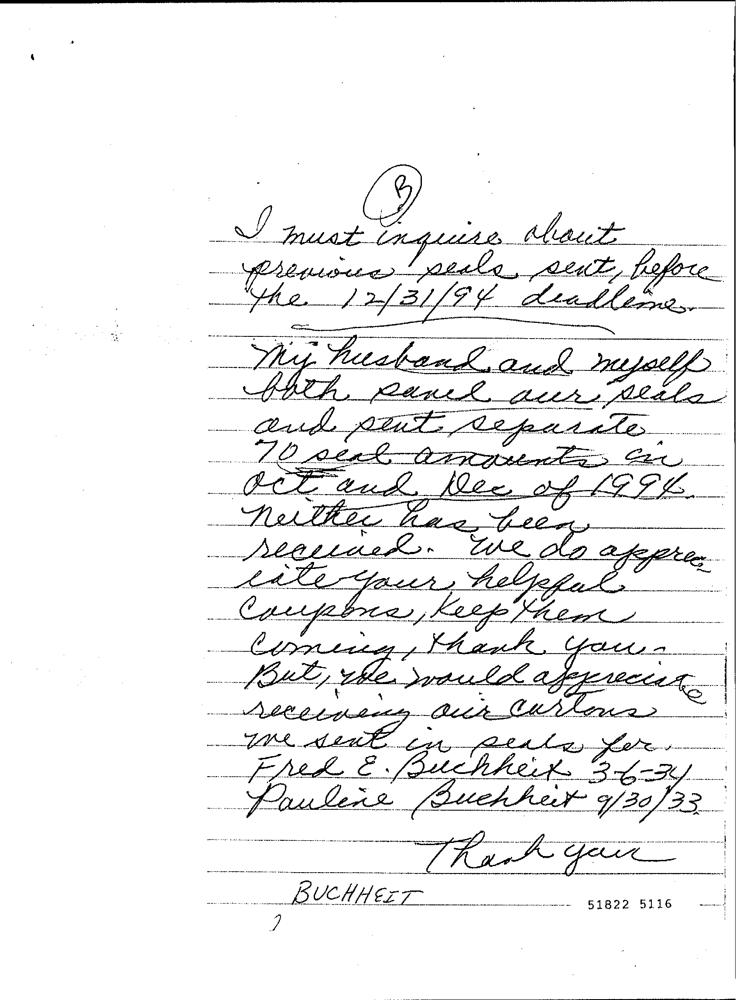 3
I must inquire about
previous seals sent, before
the 12/31/94 deadline.
My husband and myself
both saved our seals
and sent separate
70 seal amounts in
Oct and Dec of 1994.
Neither has been
received. We do apprec-
iate your helpful
coupons, keep them
coming, thank you.
But, we would appreciate
receiving our cartons
we sent in seals for.
Fred E. Buchheit 3-6-34
Pauline Buchheit 9/30/33
Thank you
BUCHHEIT
51822 5116